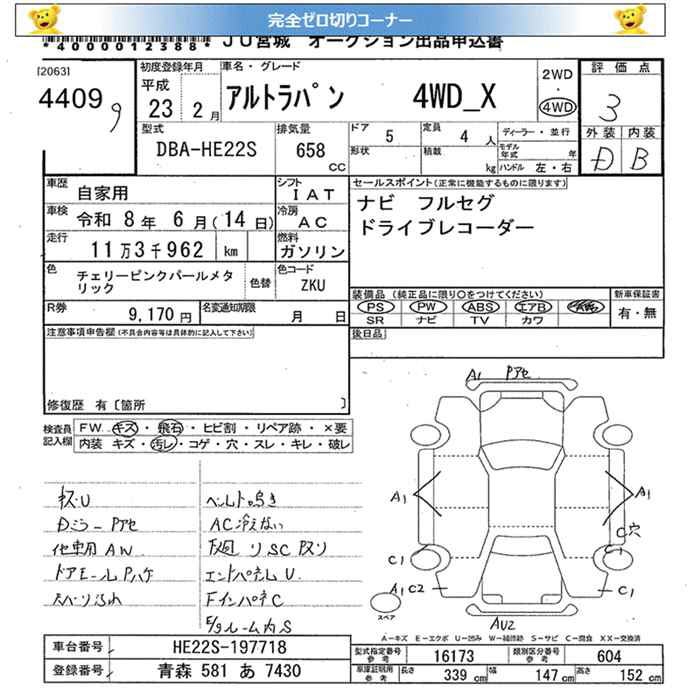 完全ゼロ切りコーナー
*4000012388* JU宮城 オークション出品申込書
[2063]
4409 9
初度登録年月
平成
23 2 月
車名・グレード
アルトラパン 4WD_X
2WD
・
4WD
評価点
3
外装 内装
D B
型式
DBA-HE22S
排気量
658
CC
ドア 5
形状
定員 4 人
積載 kg
ディーラー・並行
モデル年式 年
ハンドル 左・右
車歴 自家用
シフト IAT
車検 令和 8年 6月(14日)
冷房 AC
走行 11万3千962 km
燃料 ガソリン
色 チェリーピンクパールメタリック
色替
色コード ZKU
R券 9,170円
名変通知期限 月 日
セールスポイント(正常に機能するものに限ります)
ナビ フルセグ
ドライブレコーダー
装備品(純正品に限り○をつけてください)
PS PW ABS エアB
SR ナビ TV カワ
新車保証書
有・無
後日品
注意事項申告欄(不具合内容等は具体的に記入して下さい)
修復歴 有〔箇所 〕
検査員記入欄
FW.・キズ・飛石・ヒビ割・リペア跡・×要
内装 キズ・汚レ・コゲ・穴・スレ・キレ・破レ
キズ・U
Dミラー Pアセ
他車用AW
ドアモールPハゲ
ベルト鳴き
AC冷えない
下廻リSCキズリ
エンドパネルU
FインパネC
A1 Pアセ
A1
A1
C穴
C1
C1
A1 C2
C1
AU2
スペア
A-キズ E-エクボ U-凹み W-補修跡 S-サビ C-腐食 XX-交換済
車台番号 HE22S-197718
登録番号 青森 581 あ 7430
型式指定番号 参考 16173
類別区分番号 参考 604
車庫証明用 参考 長さ 339 cm 幅 147 cm 高さ 152 cm